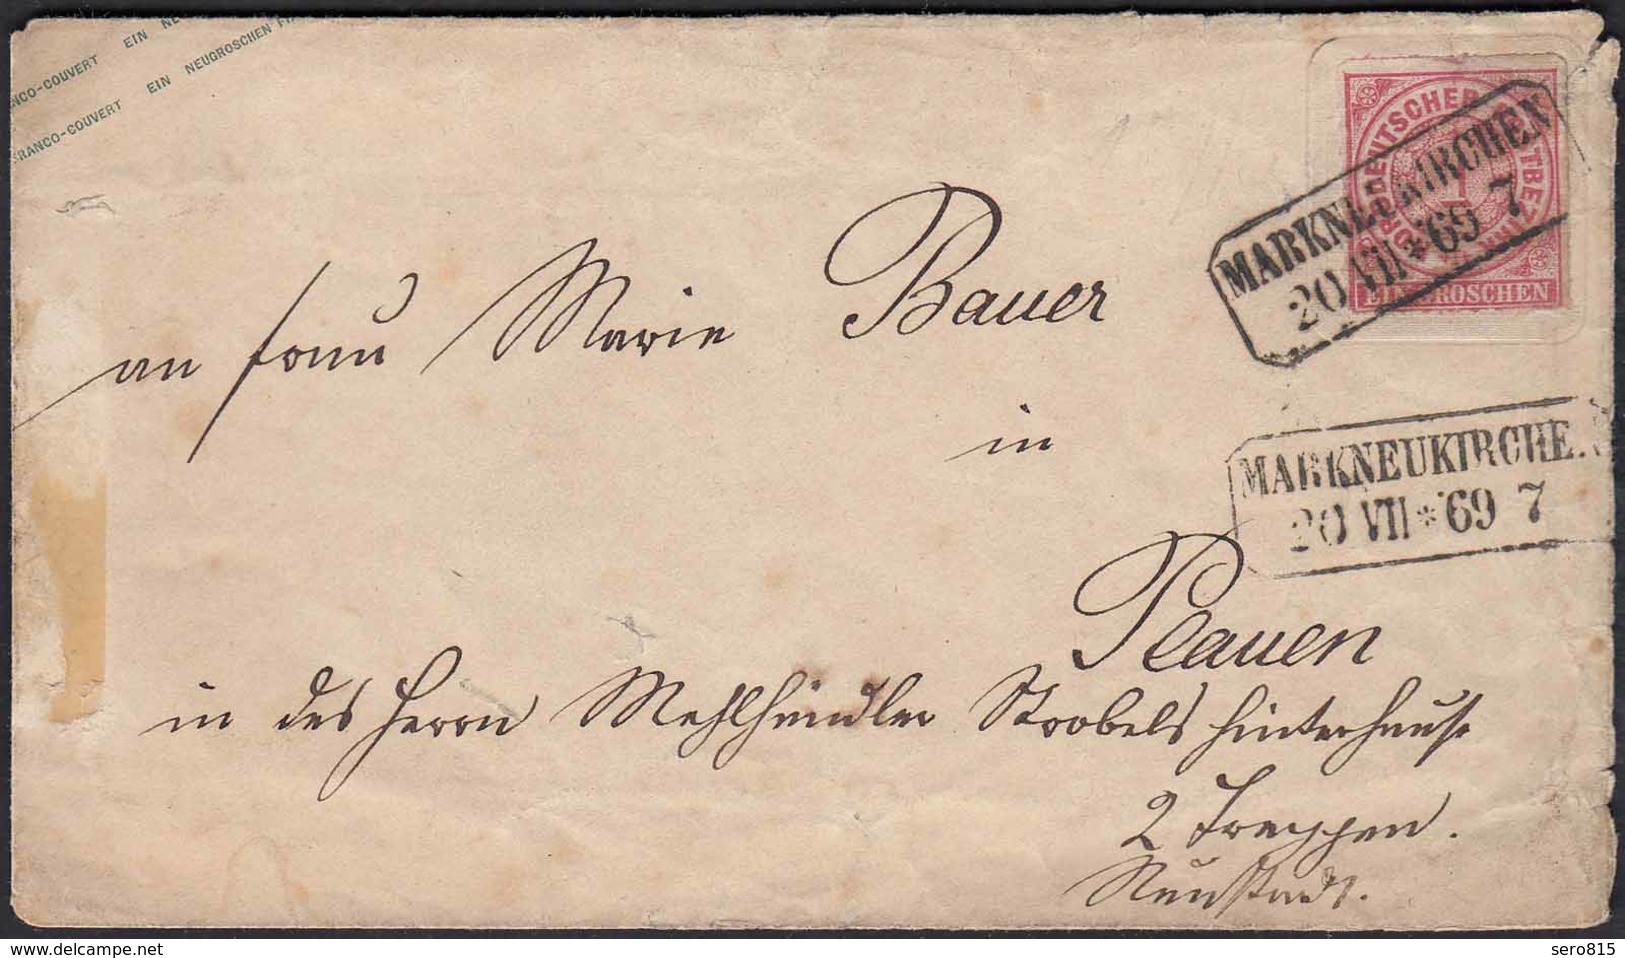 EIN NE
ANCO-COUVERT EIN NEUGROSCHEN
FRANCO-COUVERT
NORDDEUTSCHER POSTBEZIRK
1
EIN GROSCHEN
MARKNEUKIRCHEN
20 VII * 69 7
MARKNEUKIRCHE
20 VII * 69 7
an Frau Marie Bauer
in
Plauen
in des Herrn Mehlhändler Stroobels Hinterhause
2 Treppen.
Neustadt.
delcampe.net
sero815